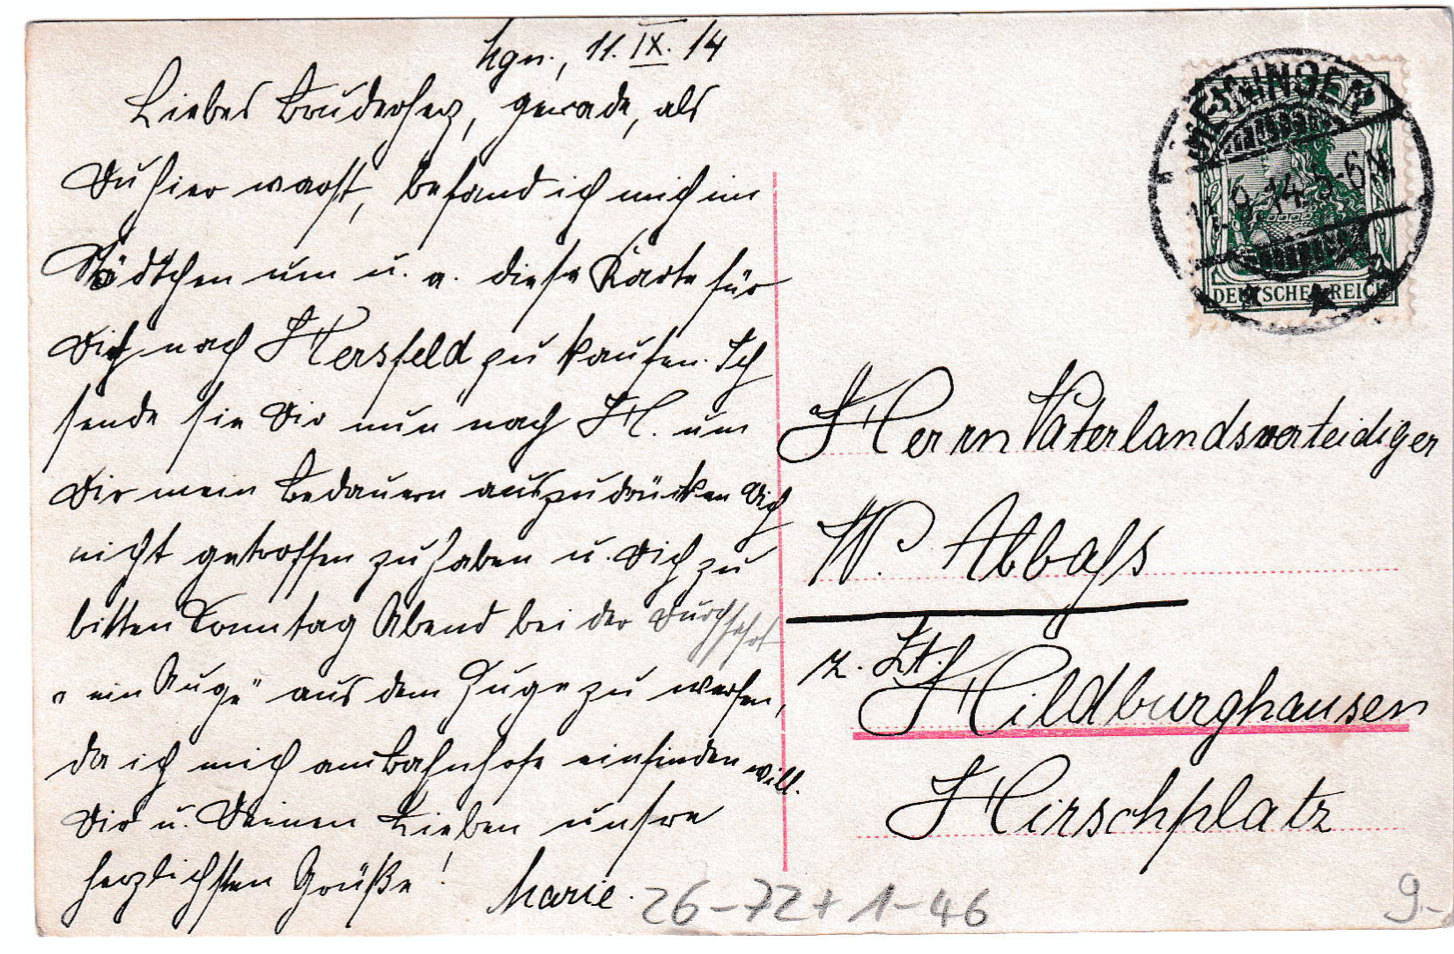 Mgn., 11. IX. 14
Liebes Bruderherz, gerade, als
Du hier warst, befand ich mich im
Städtchen um u. a. diese Karte für
Dich nach Hersfeld zu kaufen. Ich
sende sie Dir nun nach H. um
Dir mein Bedauern auszudrücken Dich
nicht getroffen zu haben u. Dich zu
bitten Sonntag Abend bei der Durchfahrt
"ein Auge" aus dem Zuge zu werfen,
da ich mich am Bahnhofe einfinden will.
Dir u. Deinen Lieben unsre
herzlichsten Grüße! Marie.
MEININGEN
9.14.5-6N
DEUTSCHES REICH
Herrn Vaterlandsverteidiger
W. Abbaß
z. Zt. Hildburghausen
Hirschplatz
26-72+1-46
9.-